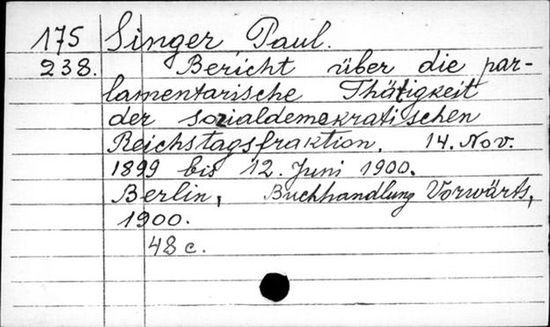 175 Singer Paul.
238. Bericht über die par-
lamentarische Thätigkeit
der sozialdemokratischen
Reichstagsfraktion. 14. Nov.
1899 bis 12. Juni 1900.
Berlin, Buchhandlung Vorwärts,
1900.
48 c.